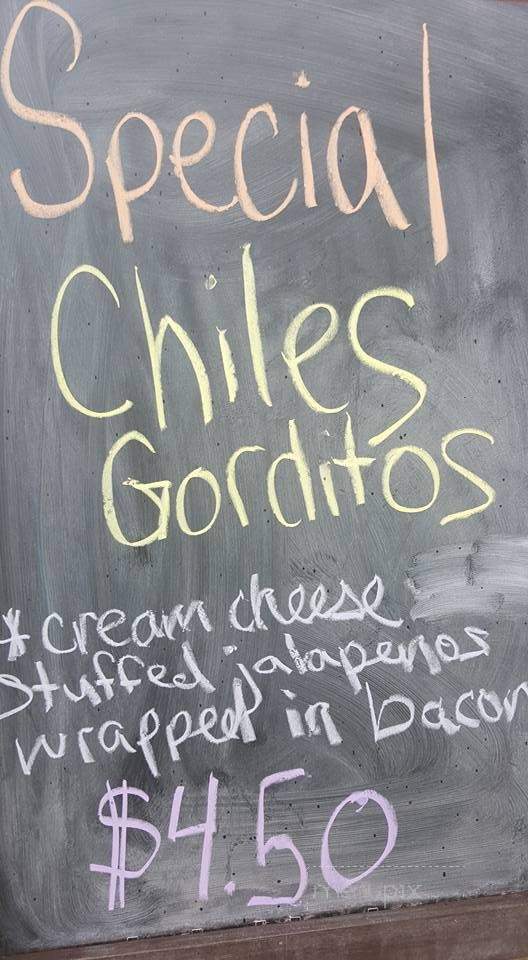 Special
Chiles
Gorditos
* cream cheese
stuffed jalapenos
wrapped in bacon
$4.50
menupix